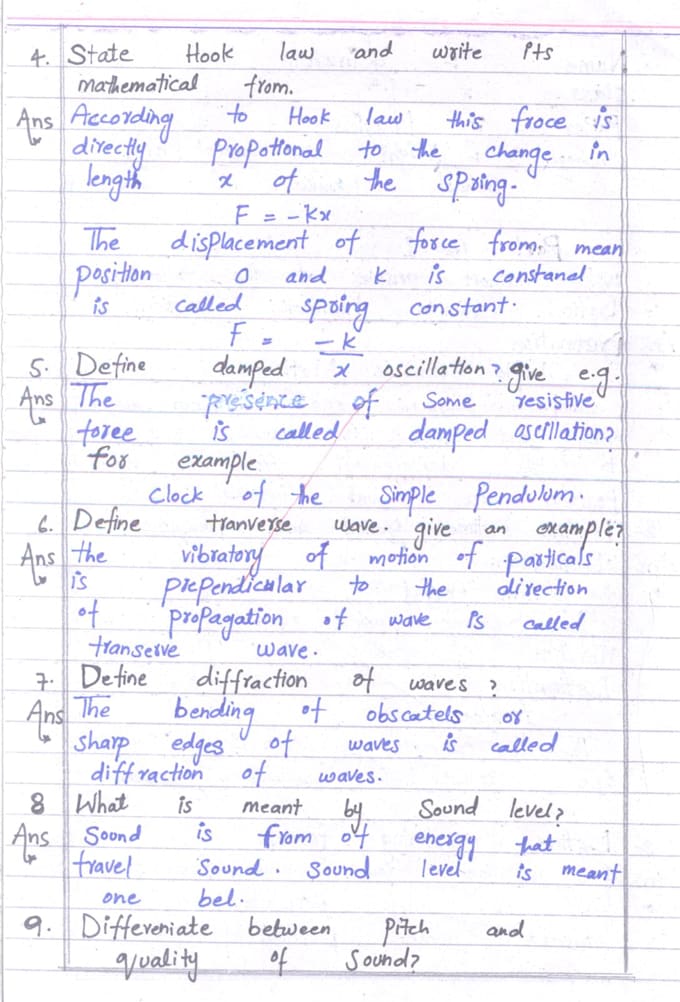 4. State Hook law and write its
mathematical from.
Ans According to Hook law this froce is
directly propotional to the change in
length x of the spring.
F = -kx
The displacement of force from mean
position O and k is constand
is called spring constant.
F = -k/x
5. Define damped oscillation? give e.g.
Ans The presence of some resistive
foree is called damped oscillation?
for example
Clock of the Simple Pendulum.
6. Define tranverse wave. give an example?
Ans the vibratory of motion of particals
is prependicular to the direction
of propagation of wave is called
transerve wave.
7. Define diffraction of waves ?
Ans The bending of obscatels or
sharp edges of waves is called
diffraction of waves.
8 What is meant by Sound level?
Ans Soond is from of energy that
travel Sound. Sound level is meant
one bel.
9. Differeniate between pitch and
quality of Sound?